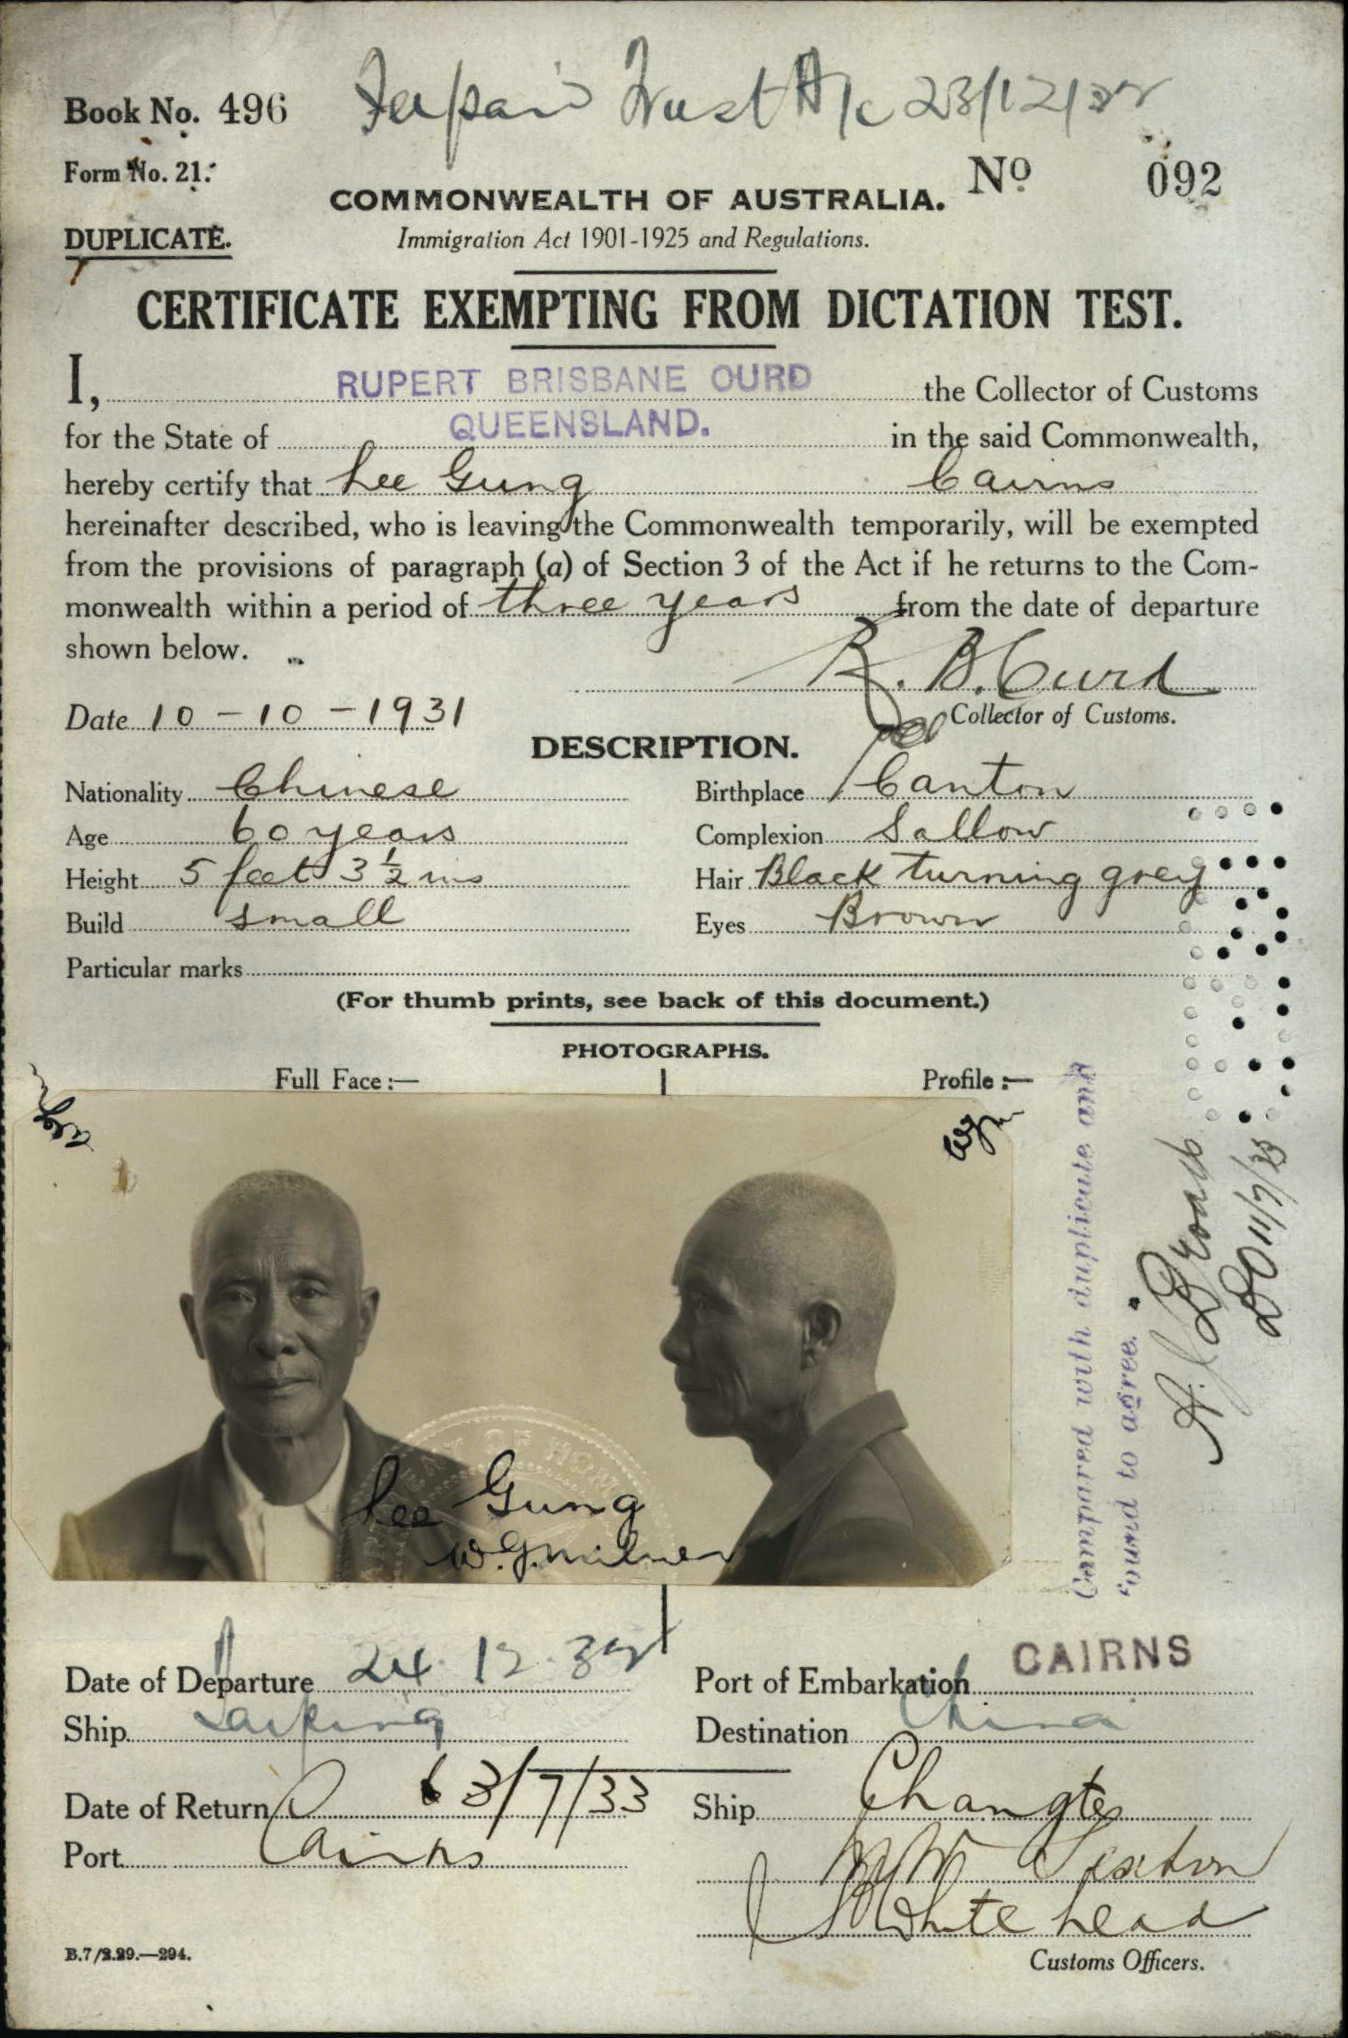 Book No. 496
Trust A/c 23/12/32
Form No. 21.
No 092
COMMONWEALTH OF AUSTRALIA.
DUPLICATE.
Immigration Act 1901-1925 and Regulations.
CERTIFICATE EXEMPTING FROM DICTATION TEST.
I, RUPERT BRISBANE CURD the Collector of Customs
for the State of QUEENSLAND. in the said Commonwealth,
hereby certify that Lee Gung Cairns
hereinafter described, who is leaving the Commonwealth temporarily, will be exempted
from the provisions of paragraph (a) of Section 3 of the Act if he returns to the Com-
monwealth within a period of three years from the date of departure
shown below.
R. B. Curd
Date 10-10-1931
Collector of Customs.
DESCRIPTION.
Nationality Chinese Birthplace Canton
Age 60 years Complexion Sallow
Height 5 feet 3 1/2 ins Hair Black turning grey
Build small Eyes Brown
Particular marks
(For thumb prints, see back of this document.)
PHOTOGRAPHS.
Full Face :— Profile :—
Lee Gung
W. G. Milner
Compared with duplicate and
found to agree.
11/7/33
Date of Departure 24.12.32 Port of Embarkation CAIRNS
Ship Taiping Destination China
Date of Return 3/7/33 Ship Changte
Port Cairns
Sexton
Whitehead
B.7/2.29.—294.
Customs Officers.